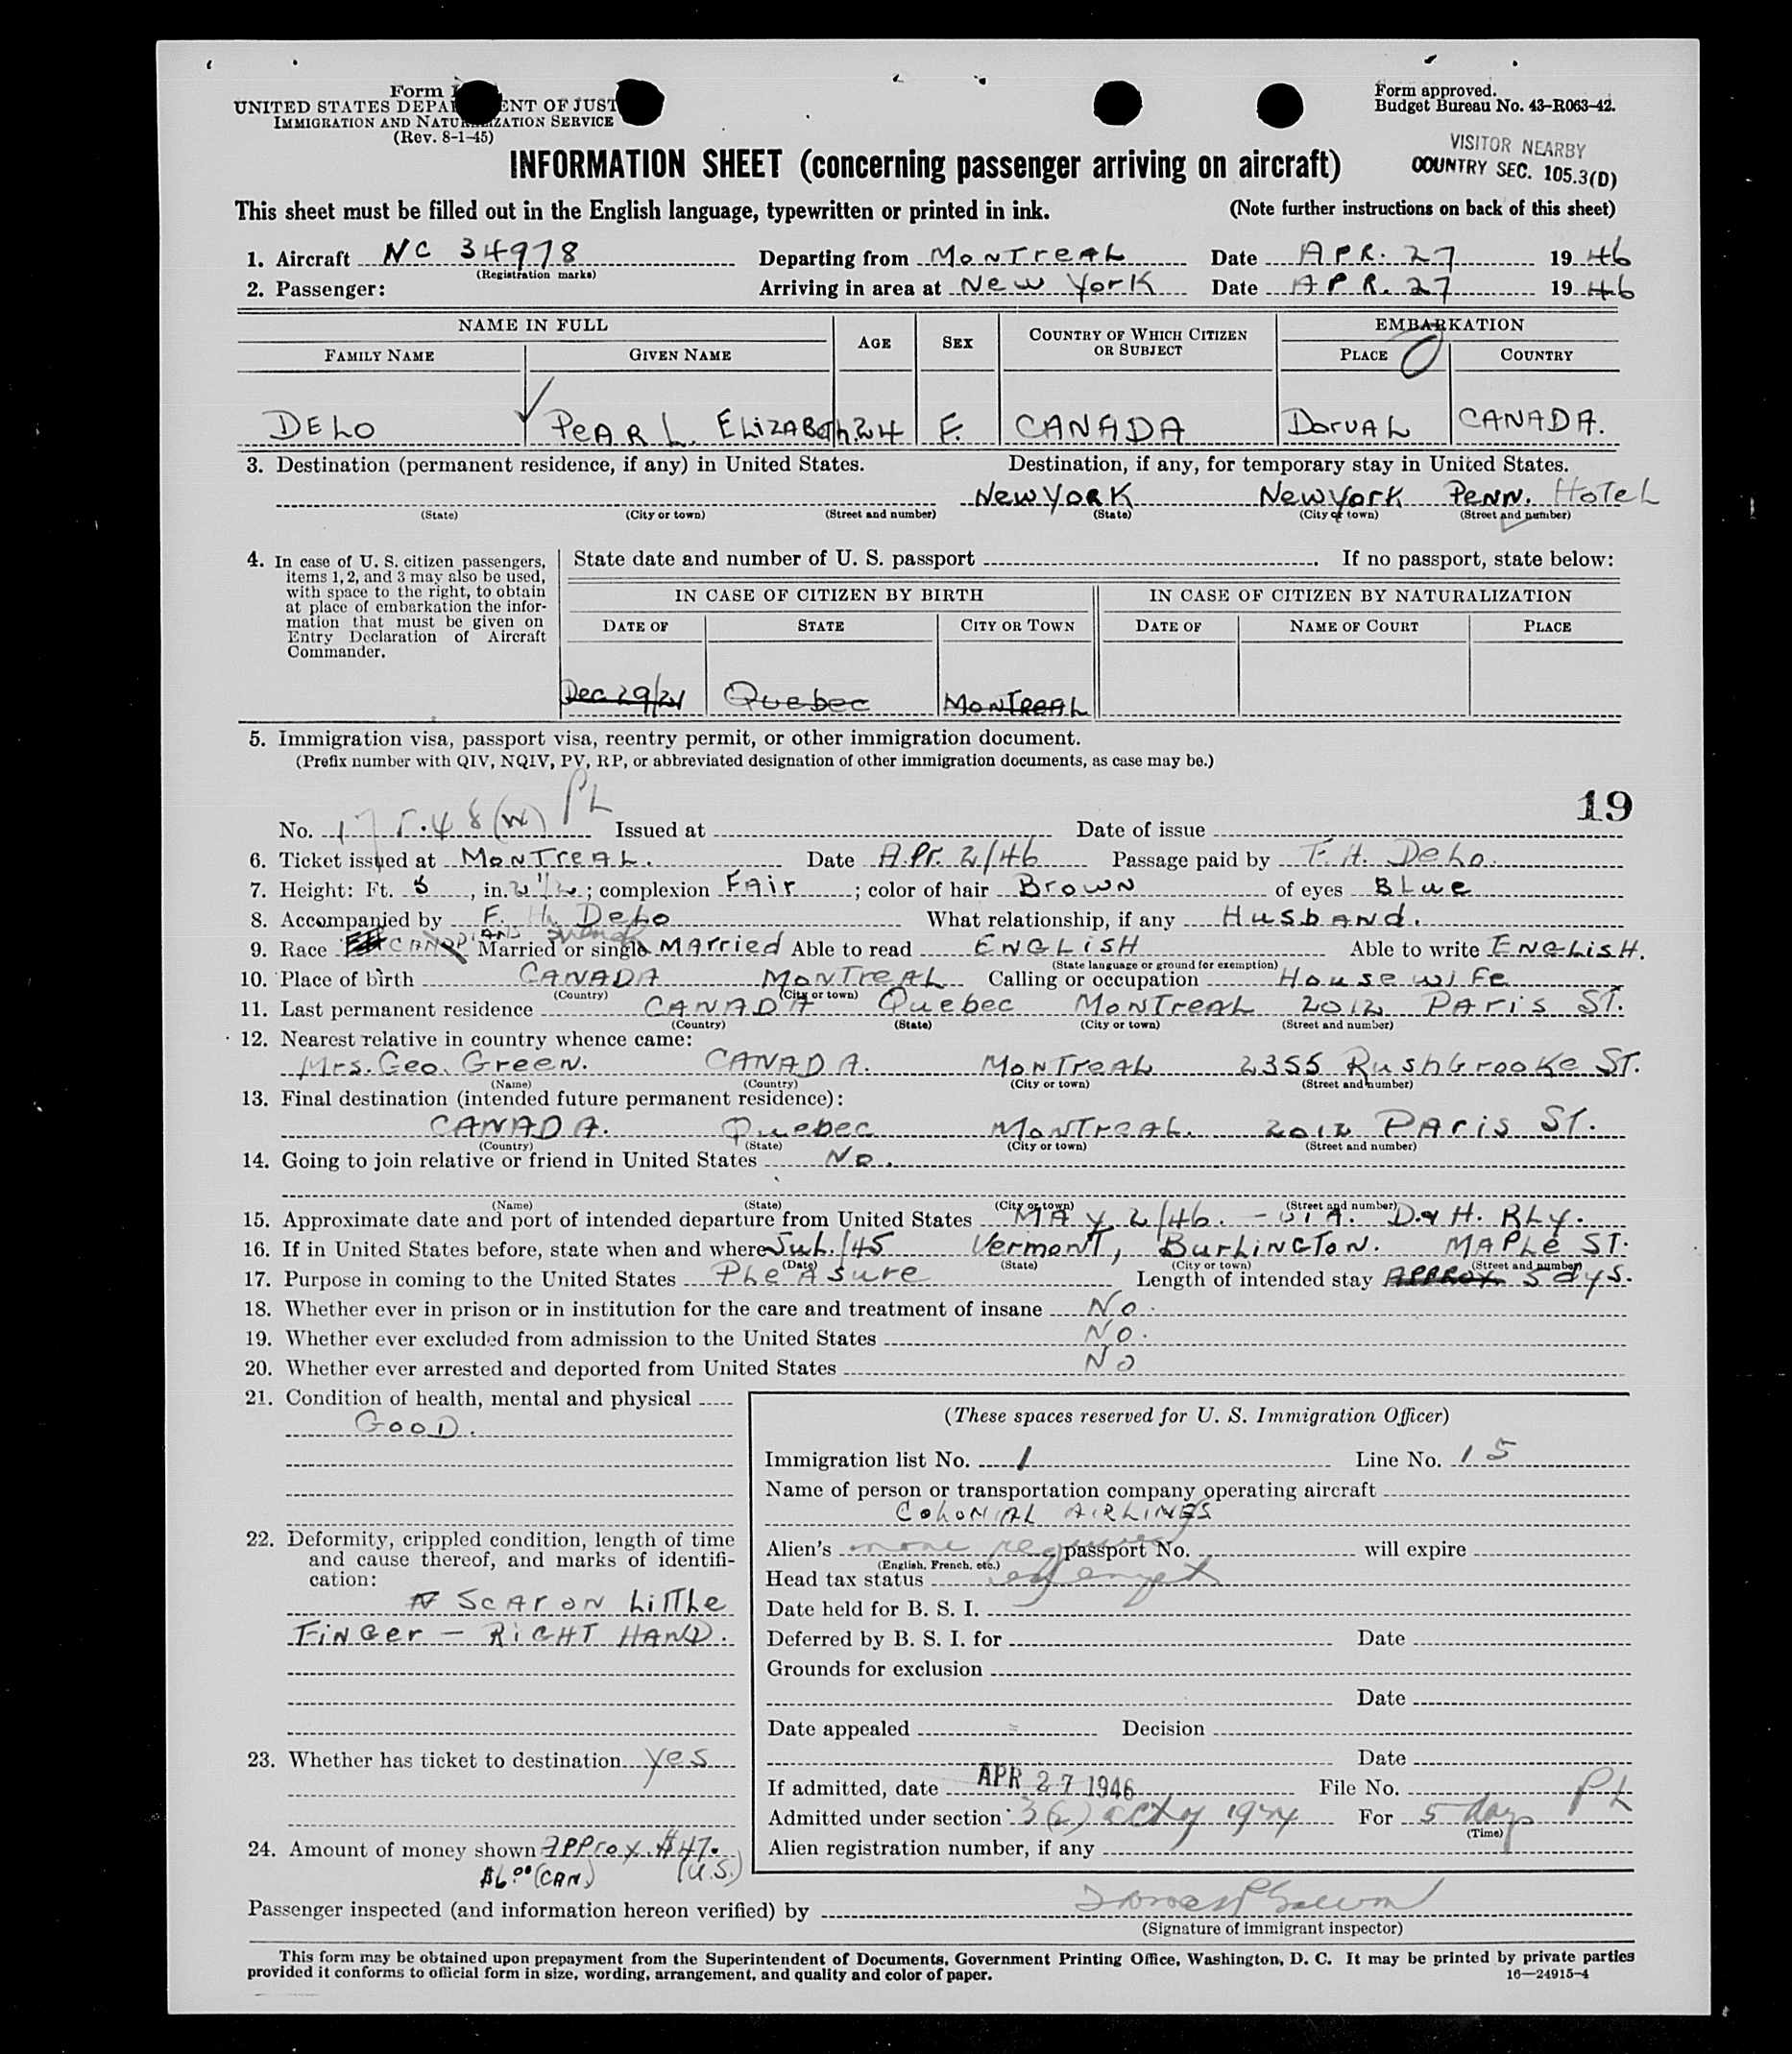 Form
UNITED STATES DEPA ENT OF JUST
IMMIGRATION AND NATU ZATION SERVICE
(Rev. 8-1-45)
Form approved.
Budget Bureau No. 43-R063-42.
VISITOR NEARBY
COUNTRY SEC. 105.3(D)
INFORMATION SHEET (concerning passenger arriving on aircraft)
This sheet must be filled out in the English language, typewritten or printed in ink. (Note further instructions on back of this sheet)
1. Aircraft NC 34978 Departing from MONTREAL Date APR. 27 1946
(Registration marks)
2. Passenger: Arriving in area at New York Date APR. 27 1946
NAME IN FULL AGE SEX COUNTRY OF WHICH CITIZEN OR SUBJECT EMBARKATION
FAMILY NAME GIVEN NAME PLACE COUNTRY
DELO PEARL ELIZABETH 24 F. CANADA DORVAL CANADA.
3. Destination (permanent residence, if any) in United States. Destination, if any, for temporary stay in United States.
New York New York Penn. Hotel
(State) (City or town) (Street and number) (State) (City or town) (Street and number)
4. In case of U. S. citizen passengers, items 1, 2, and 3 may also be used, with space to the right, to obtain at place of embarkation the information that must be given on Entry Declaration of Aircraft Commander.
State date and number of U. S. passport If no passport, state below:
IN CASE OF CITIZEN BY BIRTH IN CASE OF CITIZEN BY NATURALIZATION
DATE OF STATE CITY OR TOWN DATE OF NAME OF COURT PLACE
Dec 29/21 Quebec MONTREAL
5. Immigration visa, passport visa, reentry permit, or other immigration document.
(Prefix number with QIV, NQIV, PV, RP, or abbreviated designation of other immigration documents, as case may be.)
PL
19
No. 175.48(W) Issued at Date of issue
6. Ticket issued at MONTREAL. Date Apr. 2/46 Passage paid by F. H. Delo.
7. Height: Ft. 5, in. 2 1/2; complexion Fair; color of hair Brown of eyes Blue
8. Accompanied by F. H. Delo What relationship, if any Husband.
9. Race Married or single Married Able to read ENGLISH Able to write ENGLISH.
(State language or ground for exemption)
10. Place of birth CANADA MONTREAL Calling or occupation Housewife
(Country) (City or town)
11. Last permanent residence CANADA Quebec MONTREAL 2012 PARIS ST.
(Country) (State) (City or town) (Street and number)
12. Nearest relative in country whence came:
Mrs. Geo. Green. CANADA. MONTREAL 2355 Rushbrooke ST.
(Name) (Country) (City or town) (Street and number)
13. Final destination (intended future permanent residence):
CANADA. Quebec MONTREAL. 2012 PARIS ST.
(Country) (State) (City or town) (Street and number)
14. Going to join relative or friend in United States No.
(Name) (State) (City or town) (Street and number)
15. Approximate date and port of intended departure from United States MAY 2/46. - VIA. D & H. RLY.
16. If in United States before, state when and where Jul./45 Vermont, Burlington. MAPLE ST.
(Date) (State) (City or town) (Street and number)
17. Purpose in coming to the United States Pleasure Length of intended stay APPROX. 5 dys.
18. Whether ever in prison or in institution for the care and treatment of insane No.
19. Whether ever excluded from admission to the United States No.
20. Whether ever arrested and deported from United States No
21. Condition of health, mental and physical
GOOD.
22. Deformity, crippled condition, length of time and cause thereof, and marks of identification:
SCAR ON LITTLE
FINGER - RIGHT HAND.
23. Whether has ticket to destination yes
24. Amount of money shown approx. $47.
$6.00 (CAN.) (U.S.)
(These spaces reserved for U. S. Immigration Officer)
Immigration list No. 1 Line No. 15
Name of person or transportation company operating aircraft
COLONIAL AIRLINES
Alien's none passport No. will expire
(English, French, etc.)
Head tax status exempt
Date held for B. S. I.
Deferred by B. S. I. for Date
Grounds for exclusion
Date
Date appealed Decision
Date
If admitted, date APR 27 1946 File No.
Admitted under section 3(2) act of 1924 For 5 days PL
(Time)
Alien registration number, if any
Passenger inspected (and information hereon verified) by
(Signature of immigrant inspector)
This form may be obtained upon prepayment from the Superintendent of Documents, Government Printing Office, Washington, D. C. It may be printed by private parties
provided it conforms to official form in size, wording, arrangement, and quality and color of paper. 16—24915-4